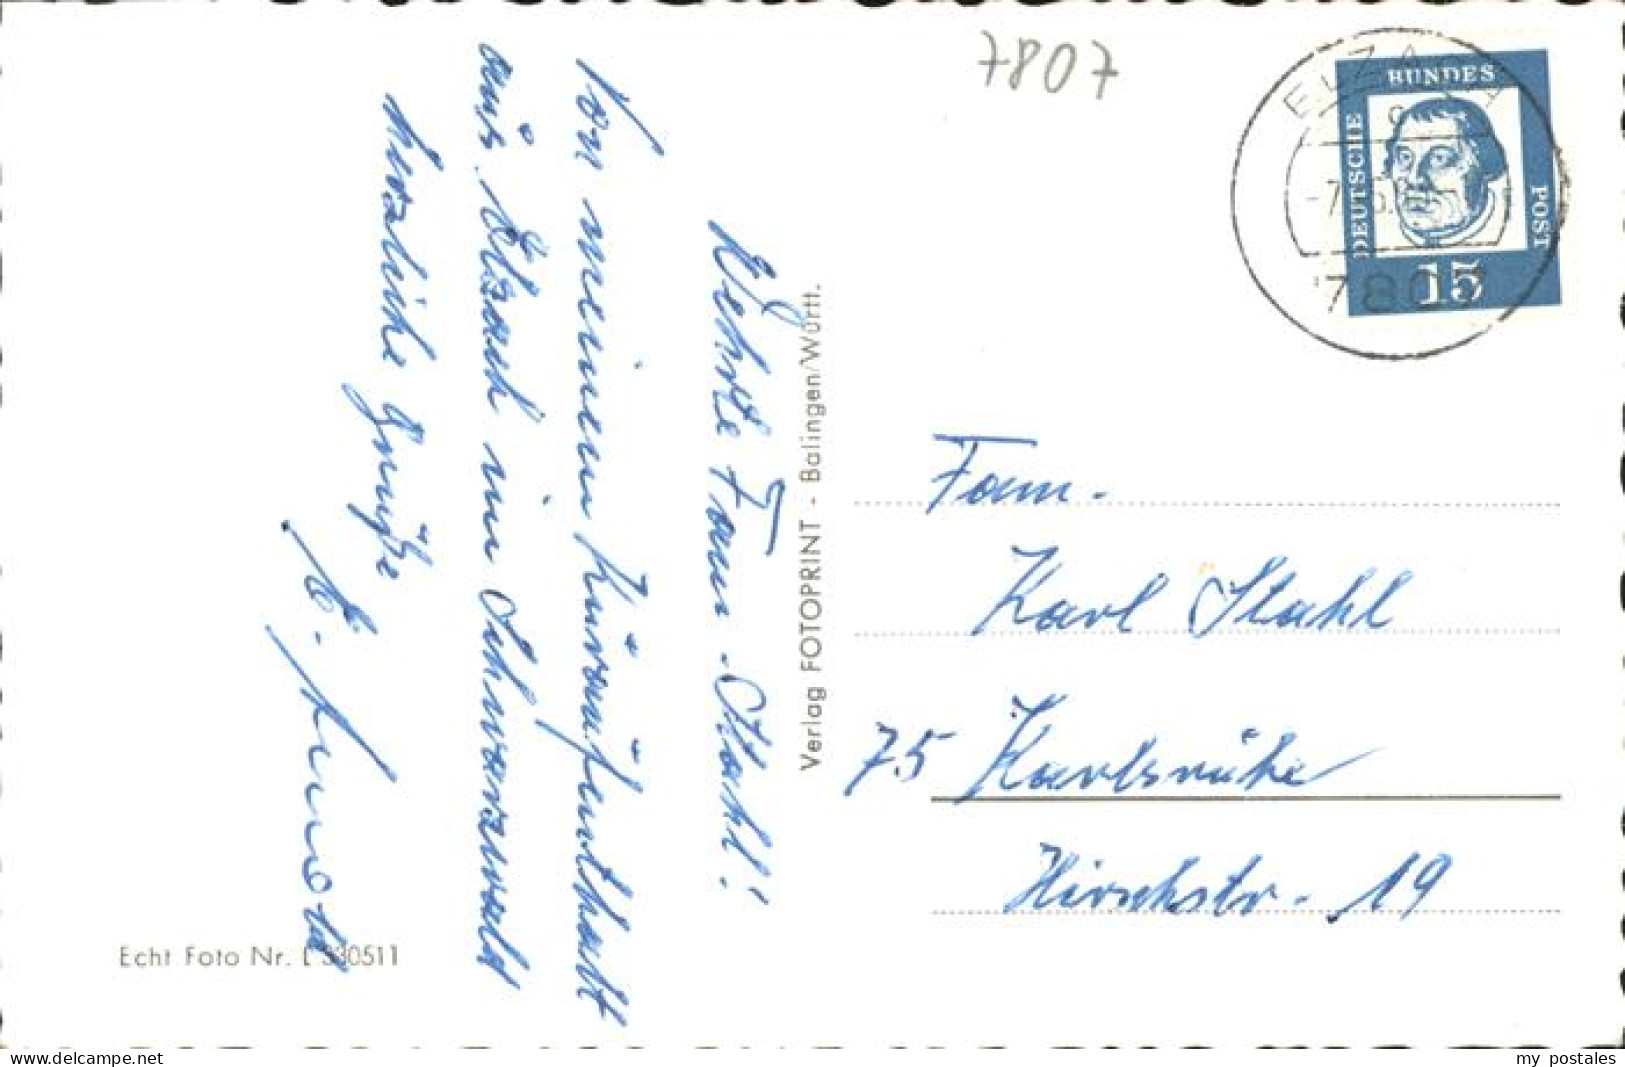 7807
ELZACH
BUNDES
DEUTSCHE
POST
15
7807
Werte Fam. Stahl!
Von meinem Kuraufenthalt
aus Elzach im Schwarzwald
herzliche Grüße
Verlag FOTOPRINT - Balingen/Württ.
Fam.
Karl Stahl
75 Karlsruhe
Hirschstr. 19
Echt Foto Nr. L 330511
www.delcampe.net
my_postales